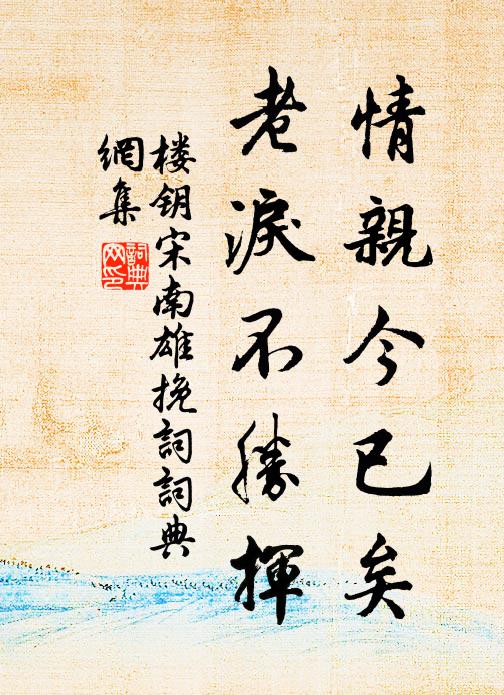 情親今已矣
老淚不勝揮
楼钥宋南雄挽詞詞典
網集
詞典
网印